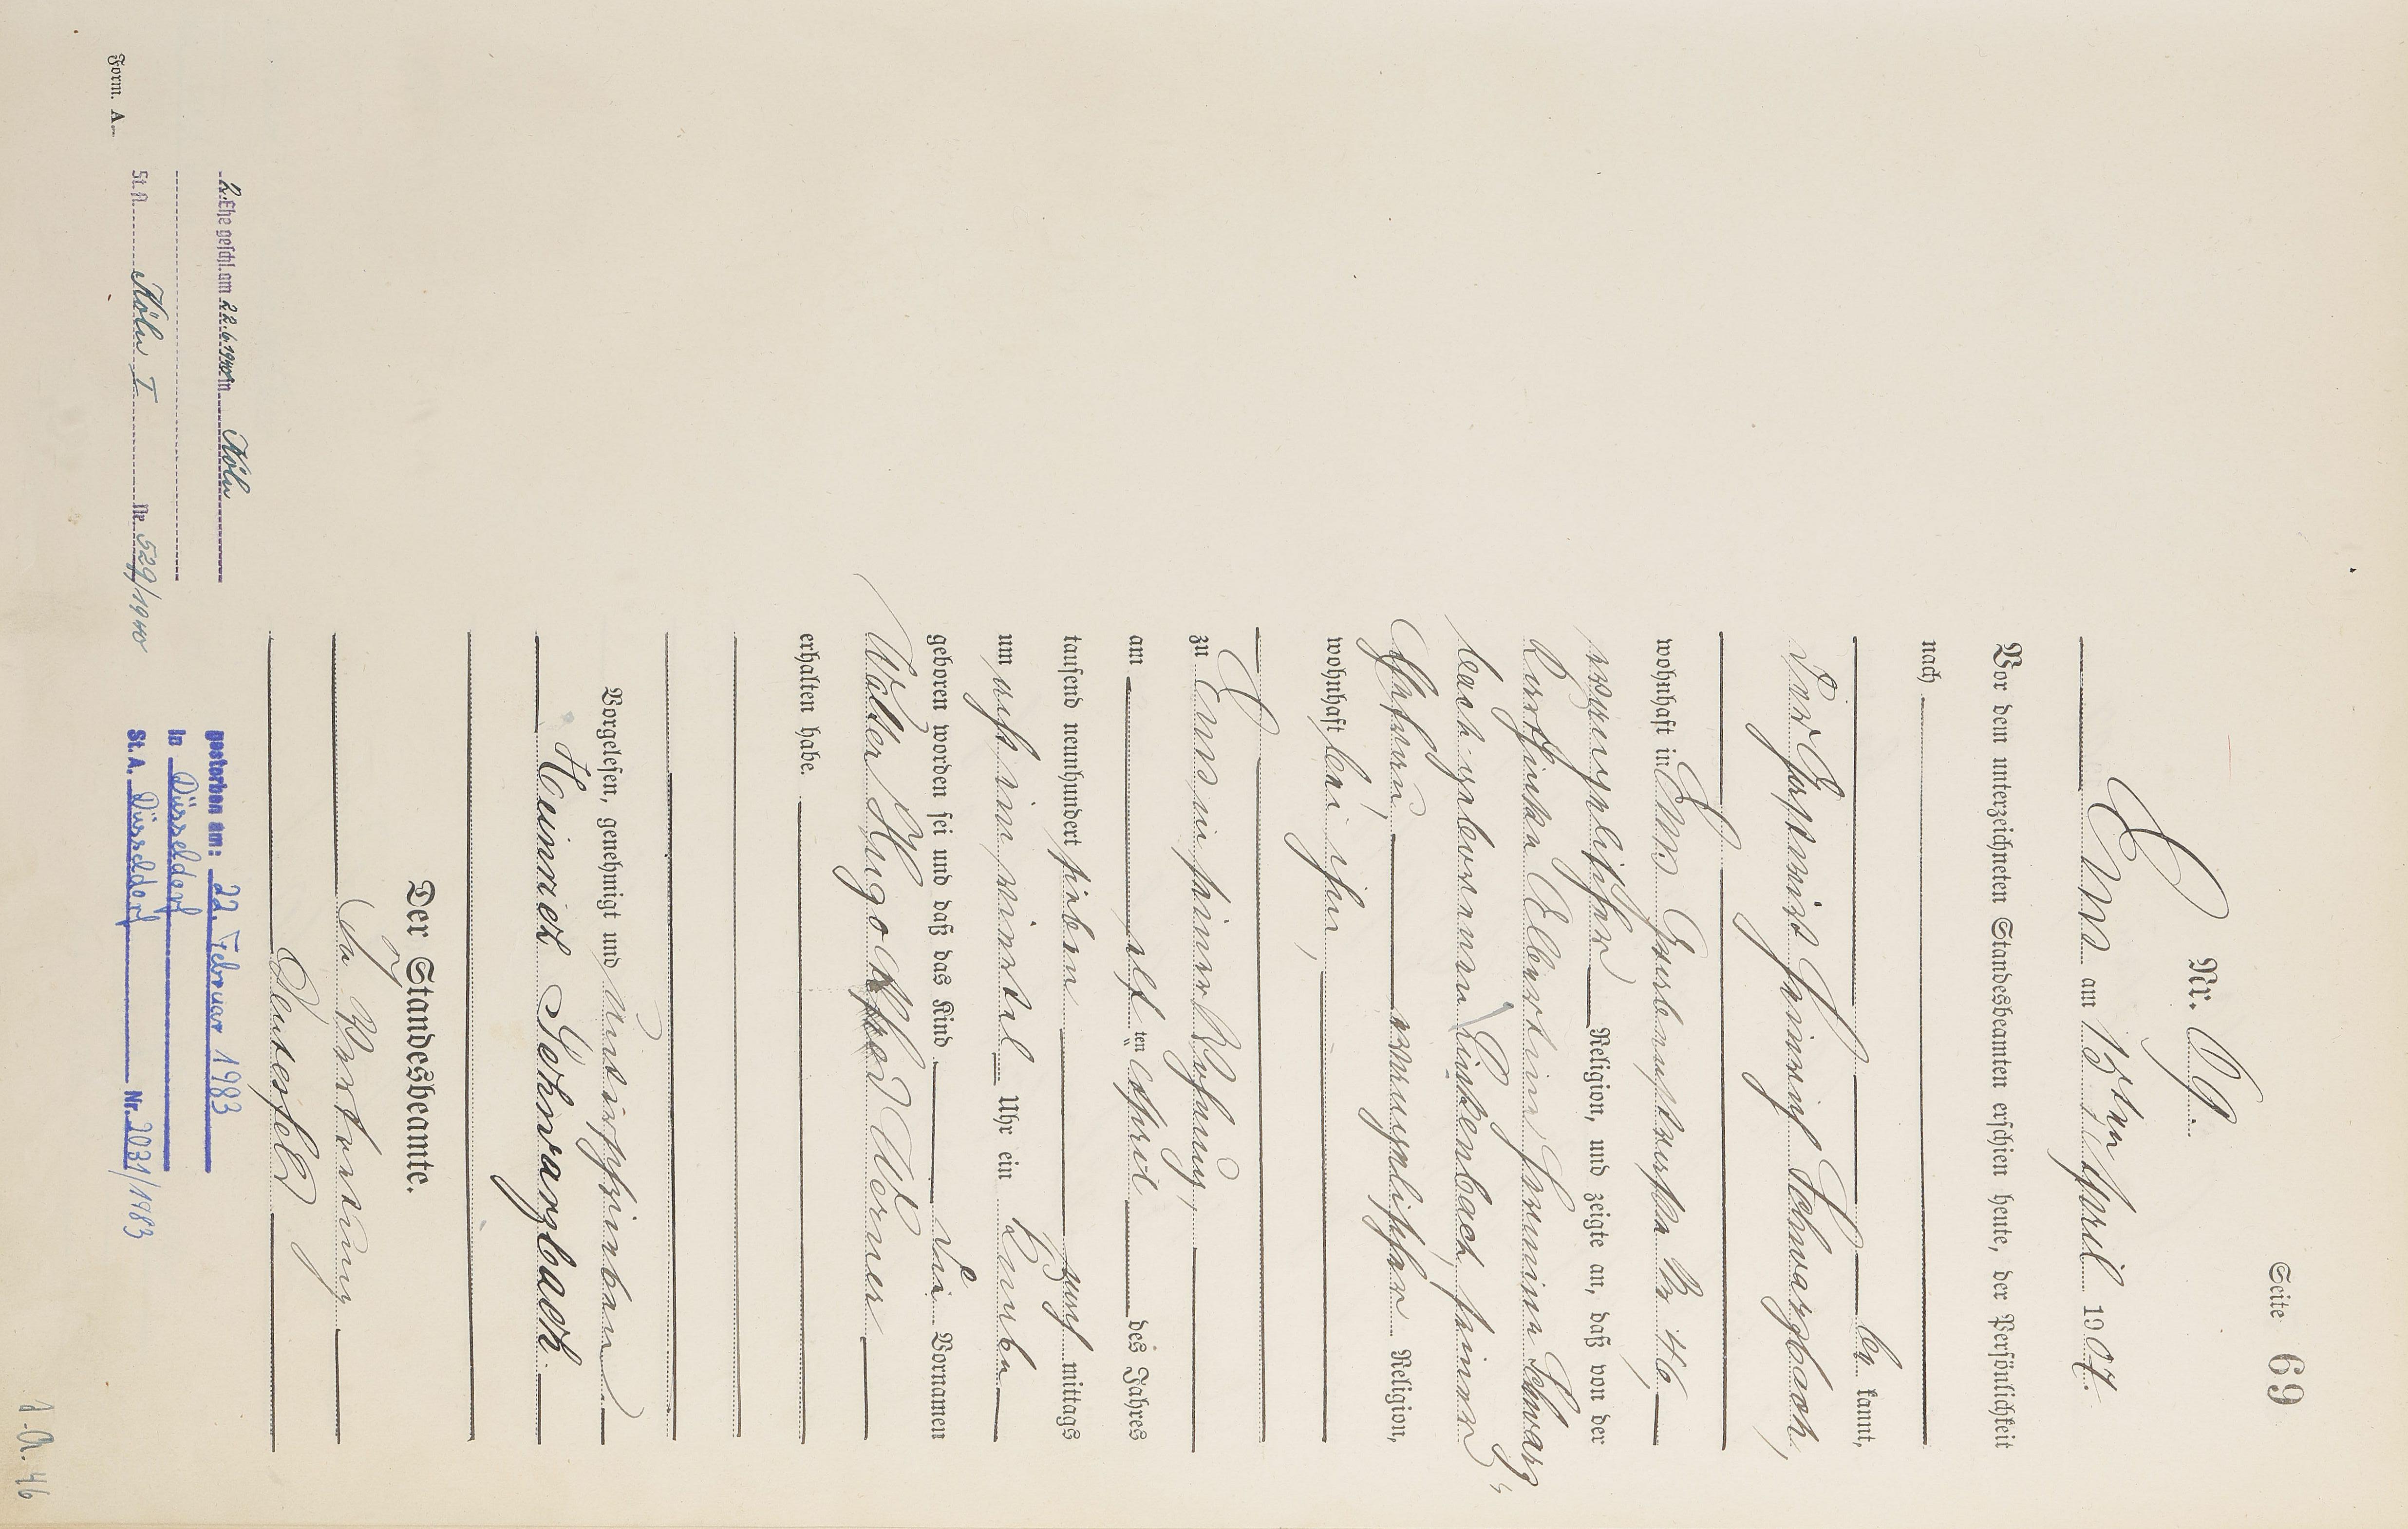 Seite 69
Nr. 69.
Ems am 13ten April 1907.
Vor dem unterzeichneten Standesbeamten erschien heute, der Persönlichkeit
nach
be kannt,
der Heinrich Schwarzbach,
wohnhaft in Ems, No 46,
evangelischer Religion, und zeigte an, daß von der
Albertine Hermine Schwarz
bach geborenen Linkenbach, seiner
Ehefrau, evangelischer Religion,
wohnhaft bei ihm,
zu Ems in seiner Wohnung,
am elf ten April des Jahres
tausend neunhundert sieben nach mittags
um acht ein viertel Uhr ein Knabe
geboren worden sei und daß das Kind die Vornamen
Walter Hugo Werner
erhalten habe.
Vorgelesen, genehmigt und unterschrieben
Heinrich Schwarzbach
Der Standesbeamte.
In Vertretung
2. Ehe geschl. am 22.6.1940 in Köln
St.A. Köln I Nr. 529/1940
gestorben am: 22. Februar 1983
in Düsseldorf
St.A. Düsseldorf Nr. 2031/1983
Form. A.
1.A. 46